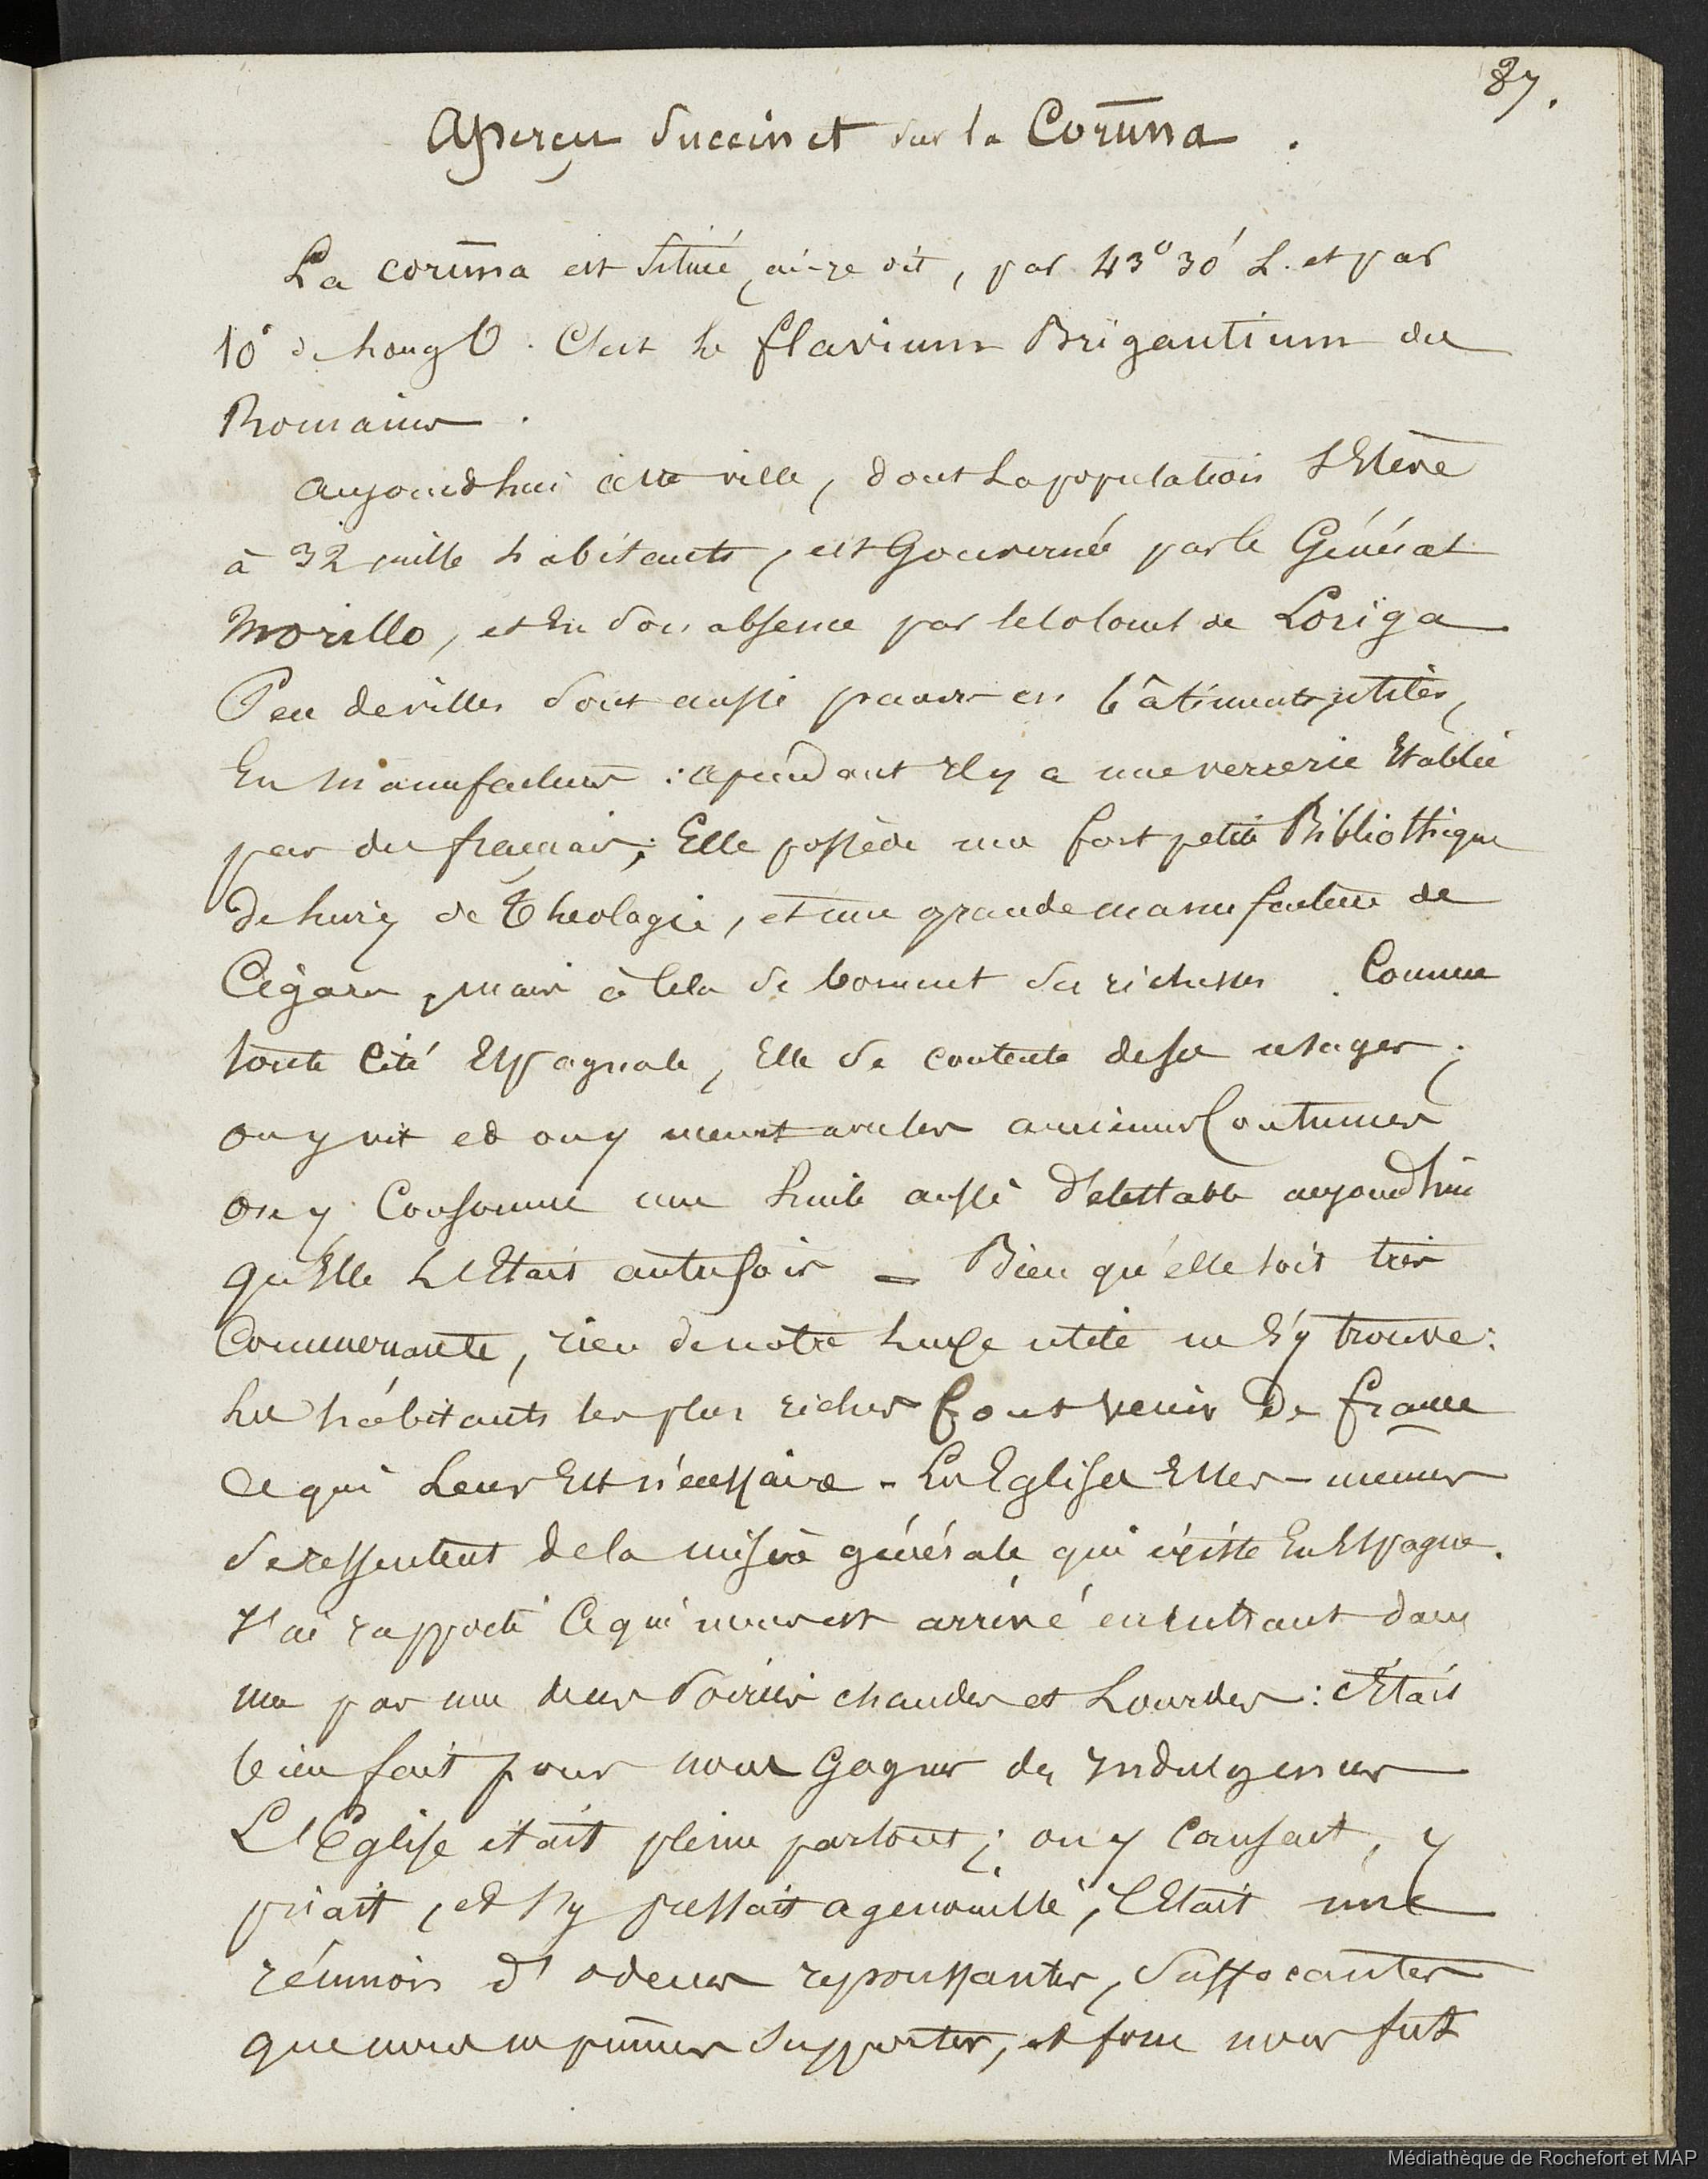 87.
Aperçu Succinct sur la Coruna.
La coruna est Située, ai-je dit, par 43° 30' L. et par
10° de Long O. C'est le flavium Brigantium des
Romains.
Aujourd'hui cette ville, dont La population S'Elève
à 32 mille habitants, est Gouvernée par le Général
Morillo, et En Son absence par le Colonel de Loriga
Peu de villes Sont aussi pauvres en bâtiments utiles,
En Manufactures : cependant Il y a une verrerie Etablie
par des français ; Elle possède une fort petite Bibliothèque
de Livres de Theologie, et une grande manufacture de
Cigares, mais à Cela se bornent ses richesses. Comme
toute Cité Espagnole, Elle se contente de ses usages ;
on y vit et on y meurt avec les anciennes Coutumes
on y Consomme une huile aussi détestable aujourd'hui
qu'Elle L'Etait autrefois — Bien qu'elle soit très
Commerçante, rien de notre Luxe utile ne s'y trouve :
Les habitants les plus riches font venir De france
Ce qui Leur Est nécessaire - Les Eglises Elles-mêmes
se ressentent de la misère générale qui éxiste En Espagne.
J'ai rapporté Ce qui nous est arrivé en Entrant dans
une par une de ces Soirées chaudes et Lourdes : c'Etait
bien fait pour nous Gagner des Indulgences
L'Eglise etait pleine partout ; on y Causait, y
priait, et s'y pressait agenouillé, C'Etait une
réunion d'odeurs repoussantes, Suffocantes
que nous ne pûmes Supporter, et force nous fut
Médiathèque de Rochefort et MAP